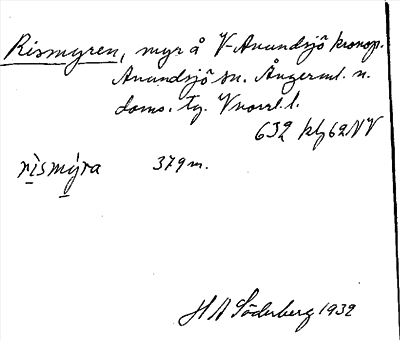 Rismyren, myr å V-Anundsjö kronop.
Anundsjö sn. Ångerml. n.
doms. tg. Vnorrl. l.
632 kbl 62NV
rìsmýra 379 m.
H A Söderberg 1932